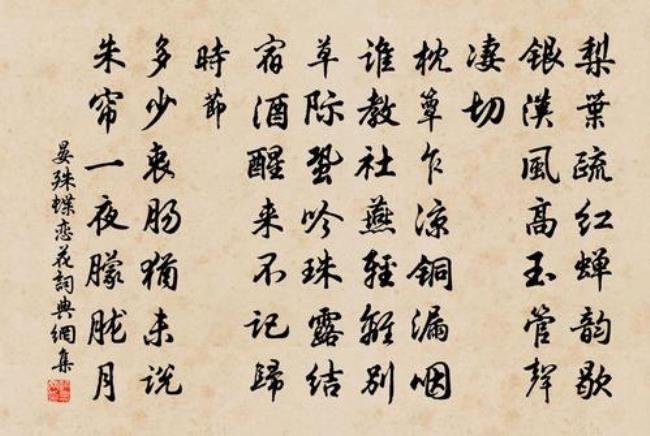 梨葉疏红蝉韵歇
银漢風高玉管聲
凄切
枕簟乍凉铜漏咽
谁教社燕輕離别
草际蛩吟珠露结
宿酒醒来不记歸
時節
多少衷肠猶未说
朱帘一夜朦胧月
晏殊蝶恋花詞典網集